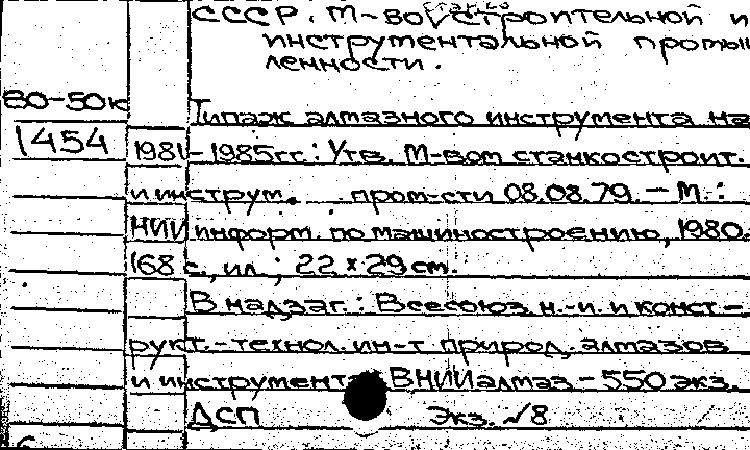 станко
СССР. М-во строительной и
инструментальной промыш
ленности.
80-50к
Типаж алмазного инструмента на
1454
1981-1985гг.: Утв. М-вом станкостроит.
и инструм. пром-сти 08.08.79. - М.:
НИИ информ. по машиностроению, 1980.
168 с., ил.; 22 х 29 см.
В надзаг.: Всесоюз. н.-и. и конст-
рукт.-технол. ин-т природ. алмазов
и инструмента ВНИИалмаз - 550 экз.
ДСП Экз. №8